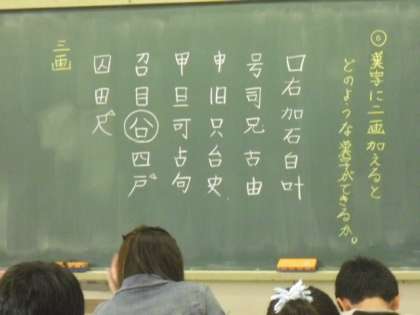 ⑥漢字に二画加えると
どのような漢字ができるか。
口右加石白叶
号司兄古由
申旧只台史
甲旦可占句
召目谷四戸
囚田尺
三画